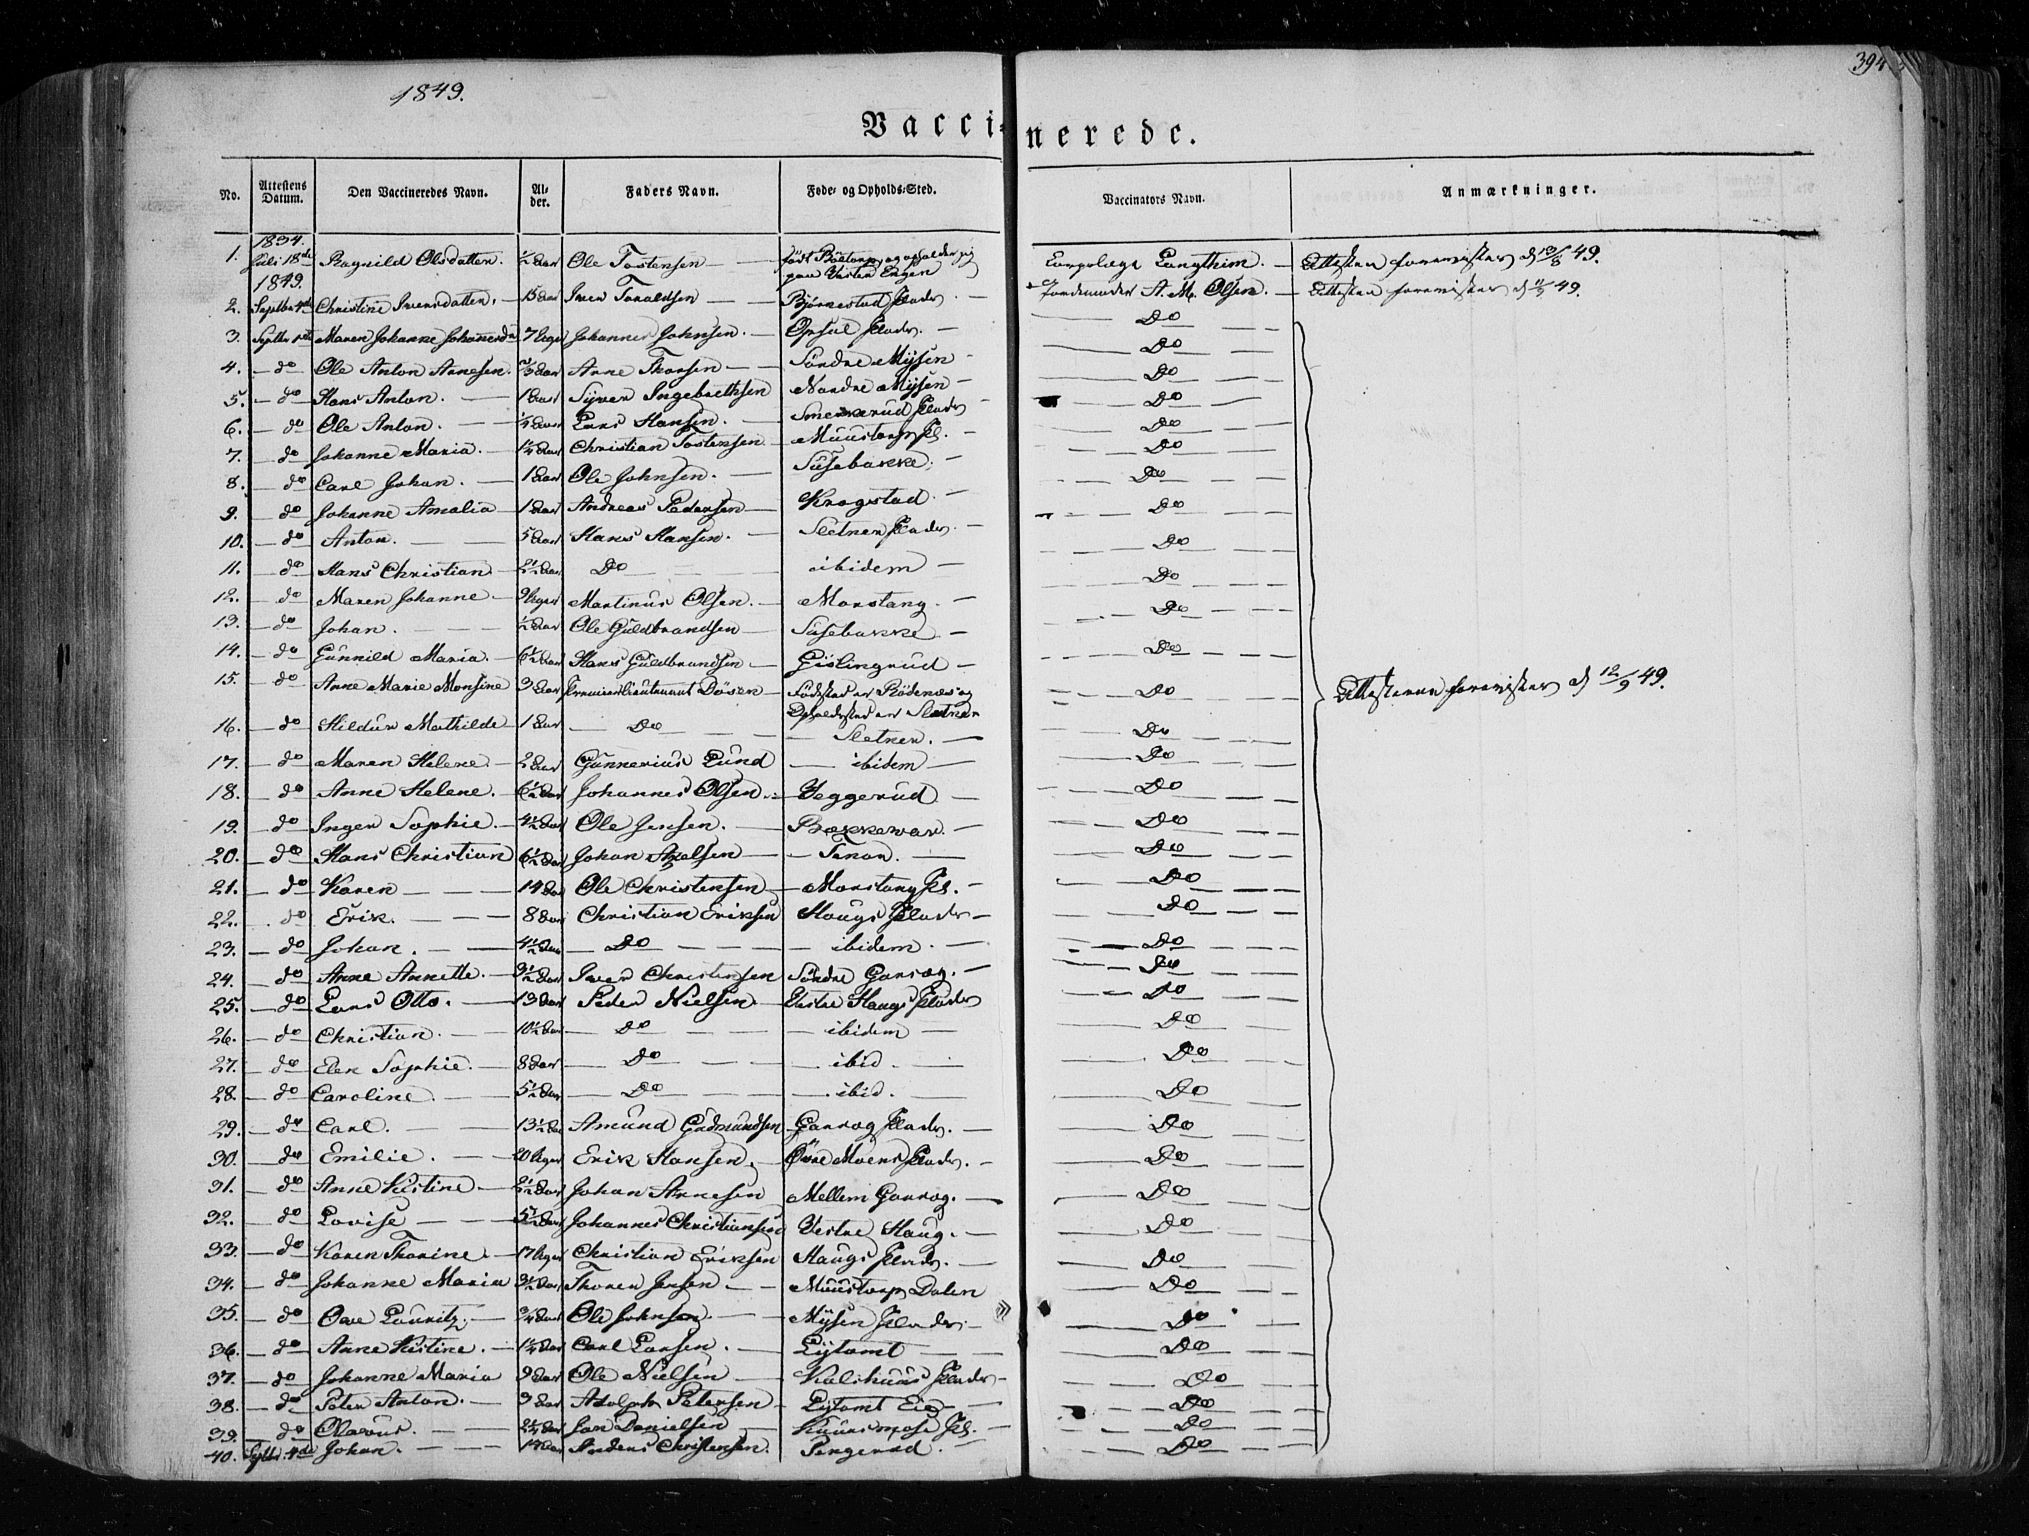 394
1849.
Vaccinerede.
No. Attestens Datum. Den Vaccineredes Navn. Alder. Faders Navn. Føde- og Opholds-Sted. Vaccinators Navn. Anmærkninger.
1834.
1. Juli 18de Ragnild Olsdatter. 1/2 Aar Ole Tostensen født og opholder sig paa Vestre Engen Corpslæge Langthim. Attesten forevist d 13/8 49.
1849.
2. Septbr 4de Christine Iversdatter. 15 Aar Iver Toraldsen Bjørnestad Jordemoder A. M. Olsen. Attesten forevist d 49.
3. Septbr Maren Johanne 7 Uger Johannes Johnsen. Opsal Do
4. do Ole Anton Arnesen. Aar Arne Thorsen Søndre Mysen Do
5. do Hans Anton. 1 Aar Syver Ingebrethsen Nordre Mysen Do
6. do Ole Anton. Aar Lars Hansen. Smerkerud Do
7. do Johanne Maria. Aar Christian Tostensen Muustorp Do
8. do Carl Johan. 1 Aar Ole Johnsen. Susebakke. Do
9. do Johanne Amalia 1 Aar Andreas Pedersen Krogstad. Do
10. do Anton. 5 Aar Hans Hansen. Sletner Do
11. do Hans Christian 2 1/2 Aar Do ibidem Do
12. do Maren Johanne 9 Uger Martinus Olsen. Morstang. Do
13. do Johan. 1/2 Aar Ole Guldbrandsen Susebakke Do
14. do Gunnild Maria. 6 1/2 Aar Hans Guldbrandsen Gislingrud Do
15. do Anne Marie Monsine 3 Aar Premierlieutenant Fødested er Rødenæs og Opholdssted er Sletner Do Attesterne forevist d 12/9 49.
16. do Hildur Mathilde 1 Aar Do Sletner. Do
17. do Maren Helene 2 Aar Gunnerius Lund ibidem Do
18. do Anne Helene. 6 1/2 Aar Johannes Olsen Veggerud Do
19. do Inger Sophie. 4 1/2 Aar Ole Jensen. Bækkevar. Do
20. do Hans Christian 6 1/2 Aar Johan Axelsen Tenor. Do
21. do Karen 14 Aar Ole Christensen Morstang Do
22. do Erik. 8 Aar Christian Eriksen Haugs Do
23. do Johan. 4 1/2 Aar Do ibidem. Do
24. do Anne Annette. 3 1/2 Aar Iver Christensen Søndre Garsæg. Do
25. do Lars Otto. 13 Aar Peder Nielsen Vestre Haugs Do
26. do Christian. 10 1/2 Aar Do ibidem Do
27. do Elen Sophie. 8 Aar Do ibid. Do
28. do Caroline. 5 1/2 Aar Do ibid. Do
29. do Carl. 13 1/2 Aar Amund Gudmundsen Do
30. do Emilie. 20 Uger Erik Hansen. Øvre Moens Do
31. do Anne Kistine 2 1/2 Aar Johan Arnesen Mellem Do
32. do Lovise 5 1/2 Aar Johannes Christiansen Vestre Haug. Do
33. do Karen Thorine. 17 Uger Christian Eriksen Haugs Do
34. do Johanne Maria 3 1/2 Aar Thoren Jensen Muustorp Dalen Do
35. do Ove Lauritz. 3/4 Aar Ole Johnsen. Mysen Do
36. do Anne Kistine. Aar Carl Larsen. Lystomt Do
37. do Johanne Maria 9 Aar Ole Nielsen Do
38. do Peter Anton. 3 Aar Adolph Petersen Lystomt Eie Do
39. do Olavus. Aar Jan Danielsen Do
40. Septbr. 4de Johan. Aar Anders Christensen. Pengerud. Do